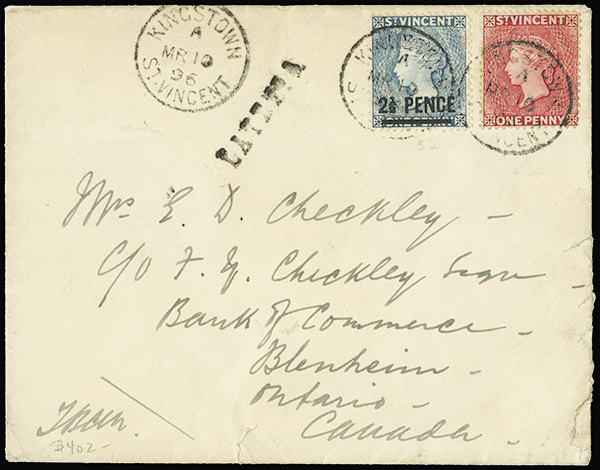 KINGSTOWN
A
MR 10
96
ST. VINCENT
LATE FEE
ST VINCENT
2½ PENCE
ST VINCENT
ONE PENNY
A
Mrs E. D. Checkley –
c/o F. Y. Checkley Esqre
Bank of Commerce –
Blenheim –
Ontario –
Canada –
#402 –